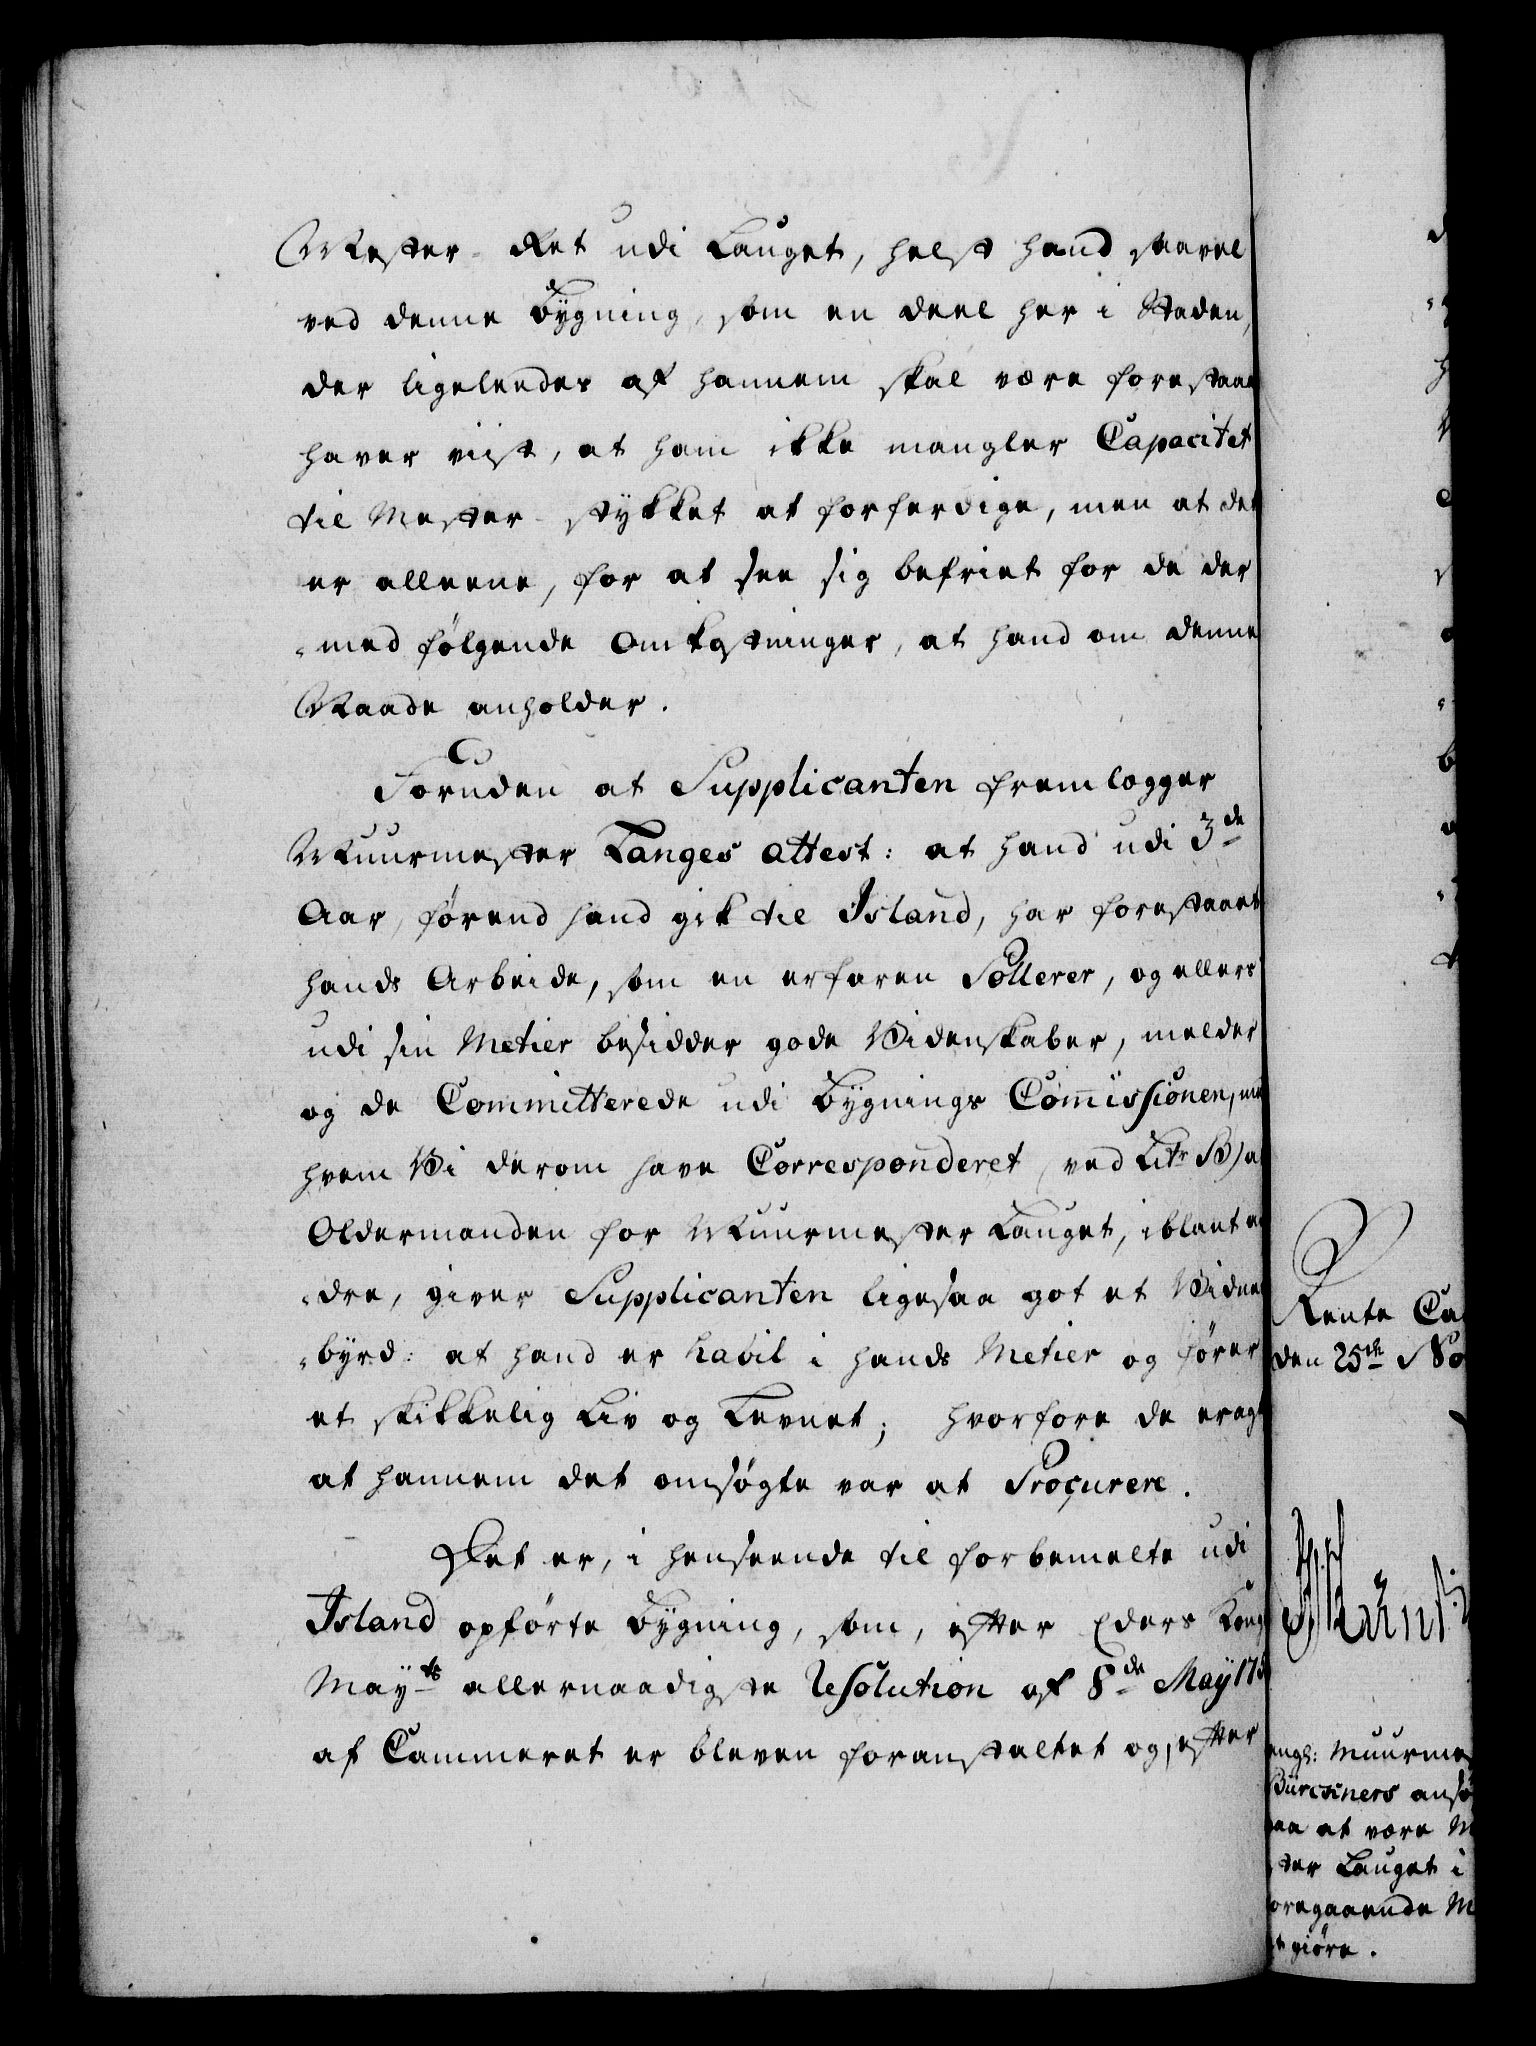 Mester-Ret udi Lauget, helst hand saavel
ved denne Bygning, som en deel her i Staden,
der ligeleedes af hannem skal være forestaae
haver viist, at ham ikke mangler Capacitet
til Mester-stykket at forferdige, men at det
er alleene, for at see sig befriet for de der
„med følgende Omkostninger, at hand om denne
Maade anholder.
Foruden at Supplicanten fremlegger
Muurmester Langes attest: at hand udi 3de
Aar, førend hand gik til Island, har forestaaet
hands Arbeide, som en erfaren Pollerer, og ellers
udi sin Metier besidder gode Videnskaber, melder
og de Committerede udi Bygnings Commissionen, med
hvem Vi derom have Corresponderet (ved Litr B) a
Oldermanden for Muurmester Lauget, iblant an
„dre, giver Supplicanten ligesaa got et Vidnes
„byrd: at hand er habil i hands Metier og fører
et skikkelig Liv og Levnet; hvorfore de eragt
at hannem det omsøgte var at Procurere.
Det er, i henseende til forbemelte udi
Island opførte Bygning, som, efter Eders Kong
Mayts allernaadigste Resolution af 8de May 17
af Cammeret er bleven foranstaltet og, efter
Rente Ca
den 25de No
engl: Muurmes
ansø
paa at være M
ter Lauget i
foregaaende M
at giøre.